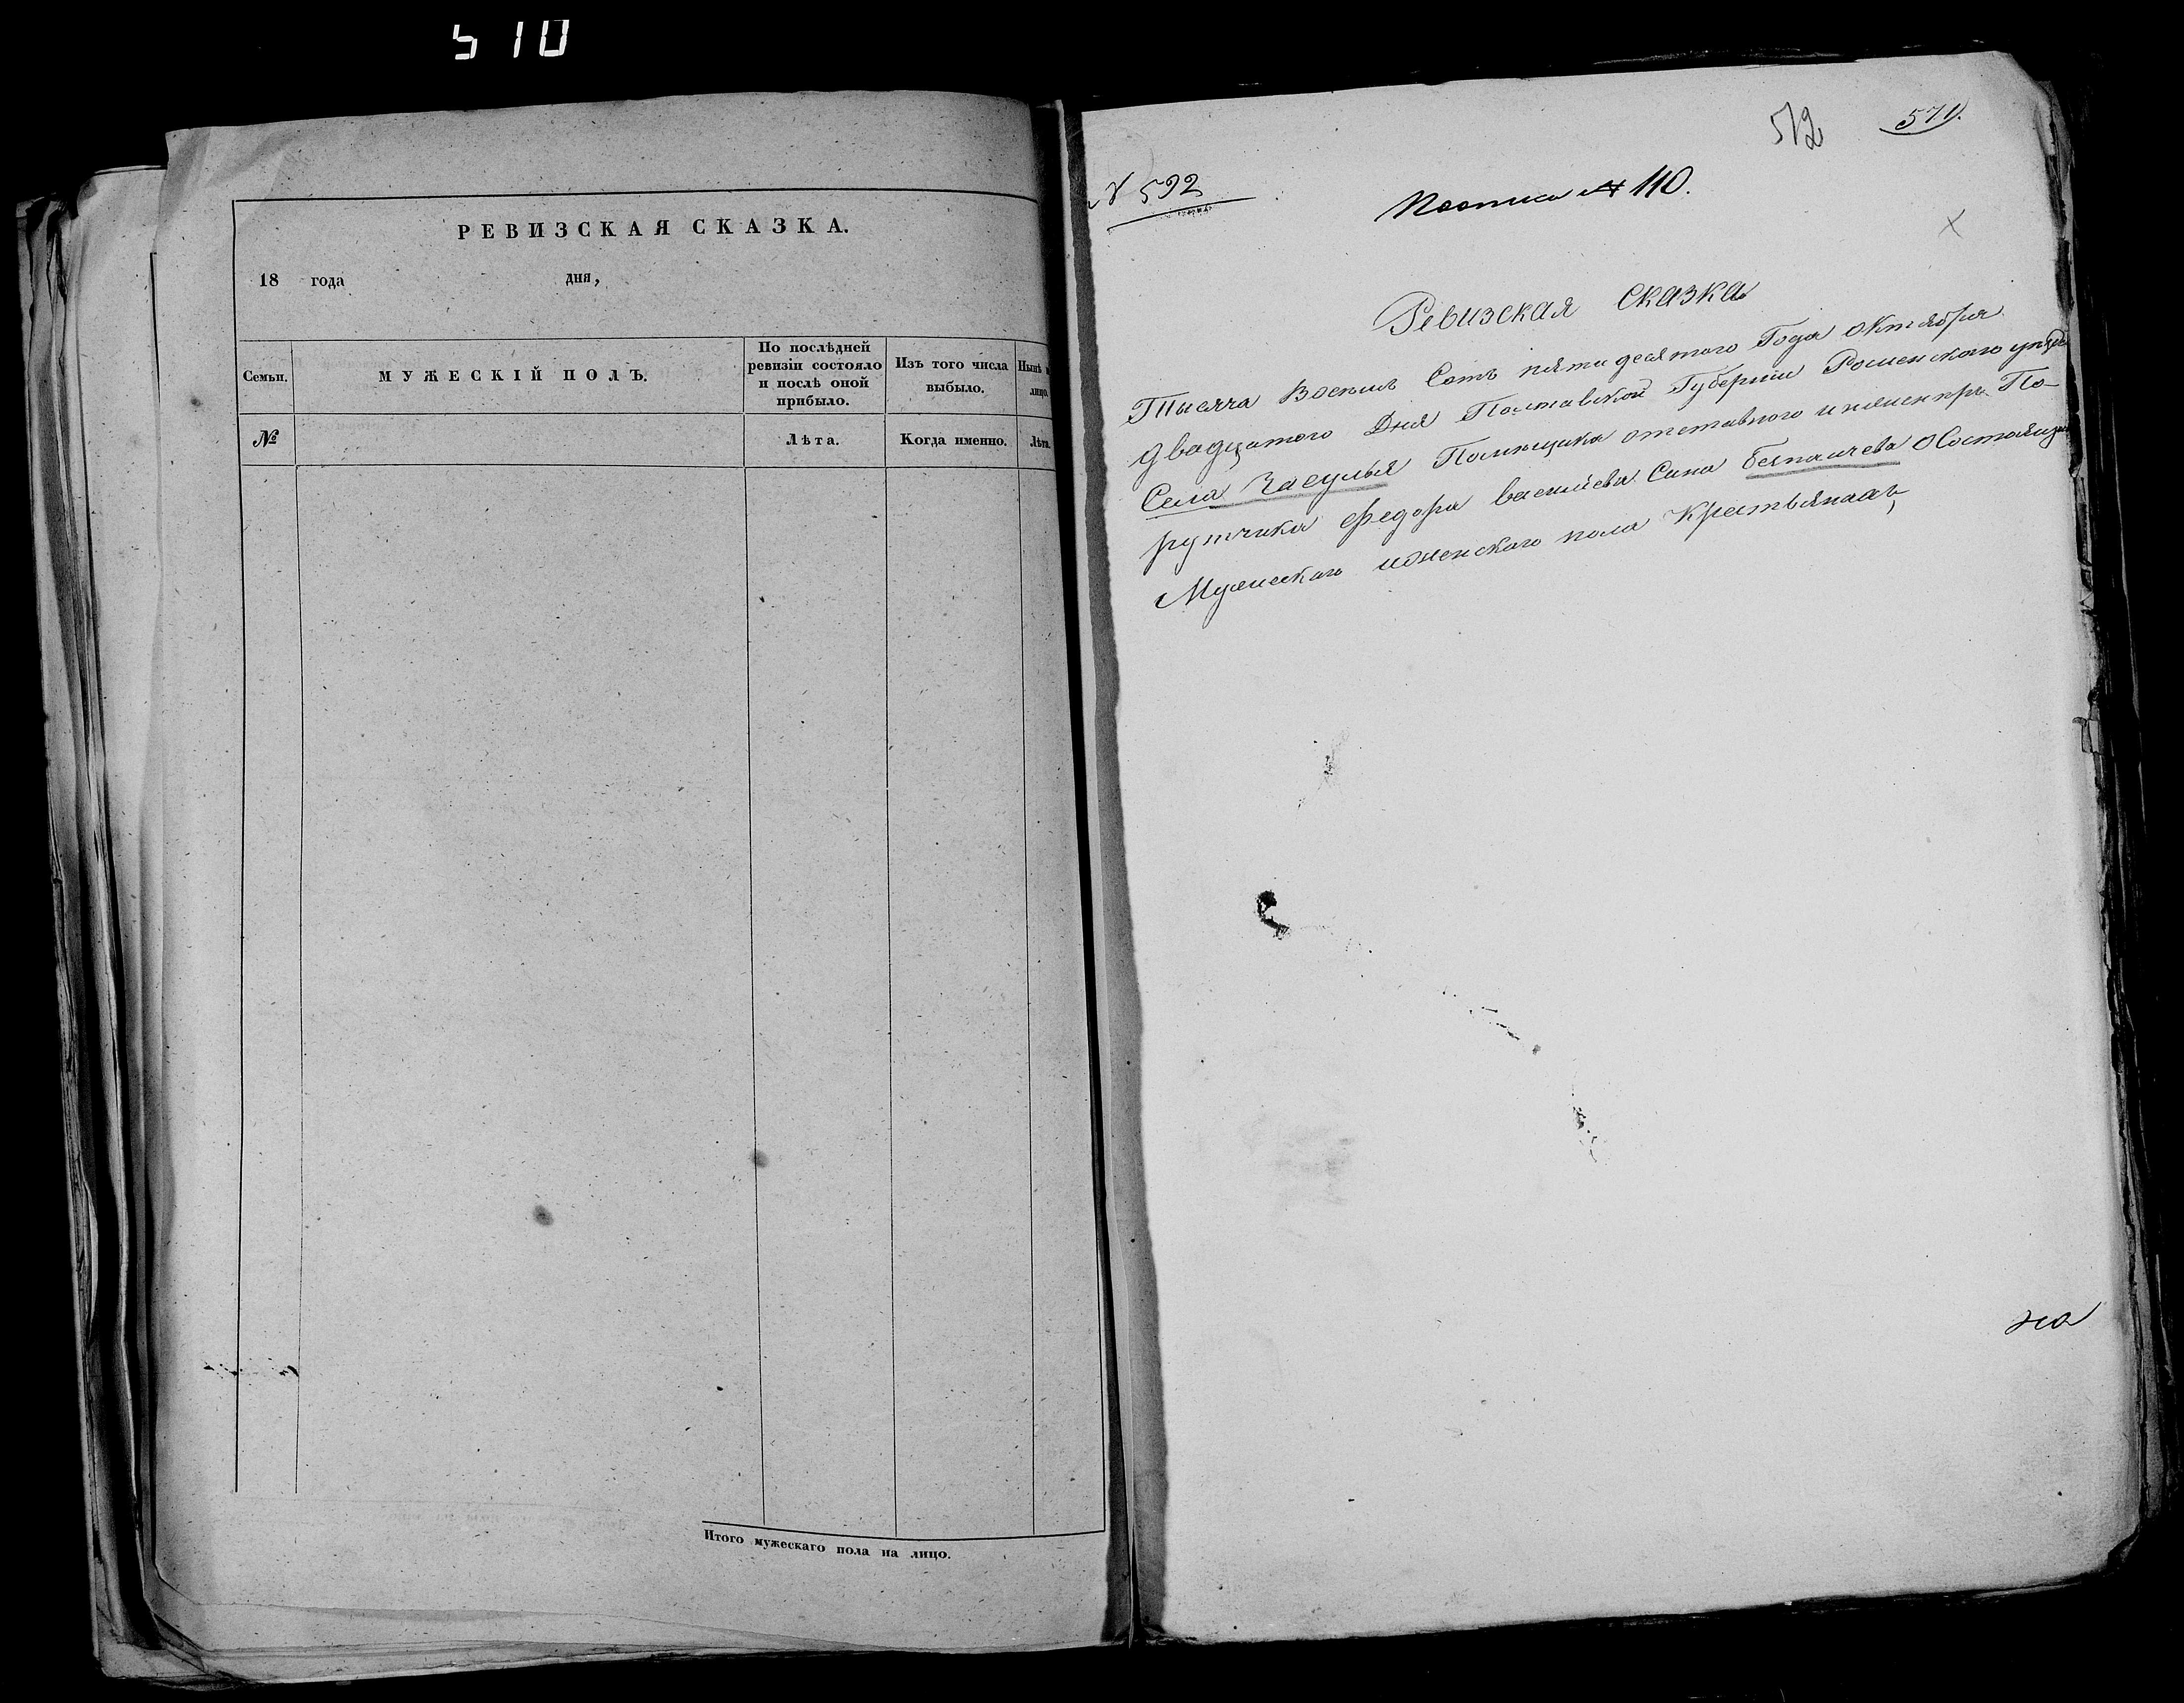 510
РЕВИЗСКАЯ СКАЗКА.
18 года дня,
Семьи.
МУЖЕСКІЙ ПОЛЪ.
По послѣдней
ревизіи состояло
и послѣ оной
прибыло.
Изъ того числа
выбыло.
Нынѣ
лицо.
№
Лѣта.
Когда именно.
Лѣта.
Итого мужескаго пола на лицо.
512 571.
№ 592
№ 110.
Ревизская сказка
Тысяча Восемь Сотъ пятидесятого Года октября
двадцатого Дня Полтавской Губернии Роменского уезда
Села Засулья Помещика отставного инженеръ По-
рутчика Федора васильева Сина О Состоящихъ
Мужеского иженского пола Крестьянахъ,
на